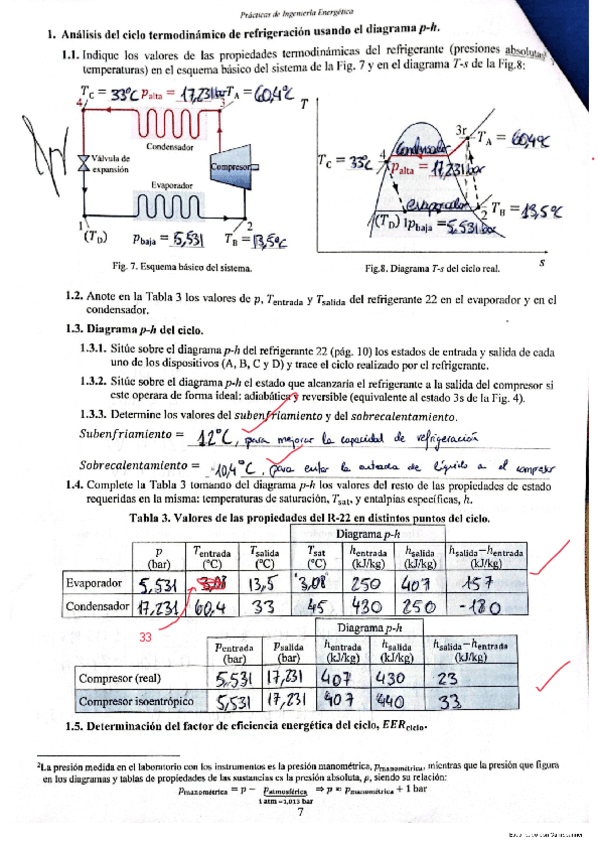 Prácticas de Ingeniería Energética
1. Análisis del ciclo termodinámico de refrigeración usando el diagrama p-h.
1.1. Indique los valores de las propiedades termodinámicas del refrigerante (presiones absolutas y
temperaturas) en el esquema básico del sistema de la Fig. 7 y en el diagrama T-s de la Fig.8:
T_C = 33°C p_alta = 17,231 bar T_A = 60,4°C
4 3
Condensador
Válvula de
expansión
Compresor
Evaporador
1 2
(T_D) p_baja = 5,531 T_B = 13,5°C
T
3r T_A = 60,4°C
Condensador
T_C = 33°C 4
p_alta = 17,231 bar
evaporador
(T_D) 1 p_baja = 5.531 bar 2 T_B = 13,5°C
s
Fig. 7. Esquema básico del sistema. Fig.8. Diagrama T-s del ciclo real.
1.2. Anote en la Tabla 3 los valores de p, T_entrada y T_salida del refrigerante 22 en el evaporador y en el
condensador.
1.3. Diagrama p-h del ciclo.
1.3.1. Sitúe sobre el diagrama p-h del refrigerante 22 (pág. 10) los estados de entrada y salida de cada
uno de los dispositivos (A, B, C y D) y trace el ciclo realizado por el refrigerante.
1.3.2. Sitúe sobre el diagrama p-h el estado que alcanzaría el refrigerante a la salida del compresor si
este operara de forma ideal: adiabática y reversible (equivalente al estado 3s de la Fig. 4).
1.3.3. Determine los valores del subenfriamiento y del sobrecalentamiento.
Subenfriamiento = 12°C, para mejorar la capacidad de refrigeración
Sobrecalentamiento = 10,4°C, para evitar la entrada de líquido a el compresor
1.4. Complete la Tabla 3 tomando del diagrama p-h los valores del resto de las propiedades de estado
requeridas en la misma: temperaturas de saturación, T_sat, y entalpías específicas, h.
Tabla 3. Valores de las propiedades del R-22 en distintos puntos del ciclo.
Diagrama p-h
p (bar) T_entrada (°C) T_salida (°C) T_sat (°C) h_entrada (kJ/kg) h_salida (kJ/kg) h_salida−h_entrada (kJ/kg)
Evaporador 5,531 3,08 13,5 3,08 250 407 157
Condensador 17,231 60,4 33 45 430 250 -180
33
Diagrama p-h
p_entrada (bar) p_salida (bar) h_entrada (kJ/kg) h_salida (kJ/kg) h_salida−h_entrada (kJ/kg)
Compresor (real) 5,531 17,231 407 430 23
Compresor isoentrópico 5,531 17,231 407 440 33
1.5. Determinación del factor de eficiencia energética del ciclo, EER_ciclo.
²La presión medida en el laboratorio con los instrumentos es la presión manométrica, p_manométrica, mientras que la presión que figura
en los diagramas y tablas de propiedades de las sustancias es la presión absoluta, p, siendo su relación:
p_manométrica = p − p_atmosférica ⇒ p = p_manométrica + 1 bar
1 atm=1,013 bar
7